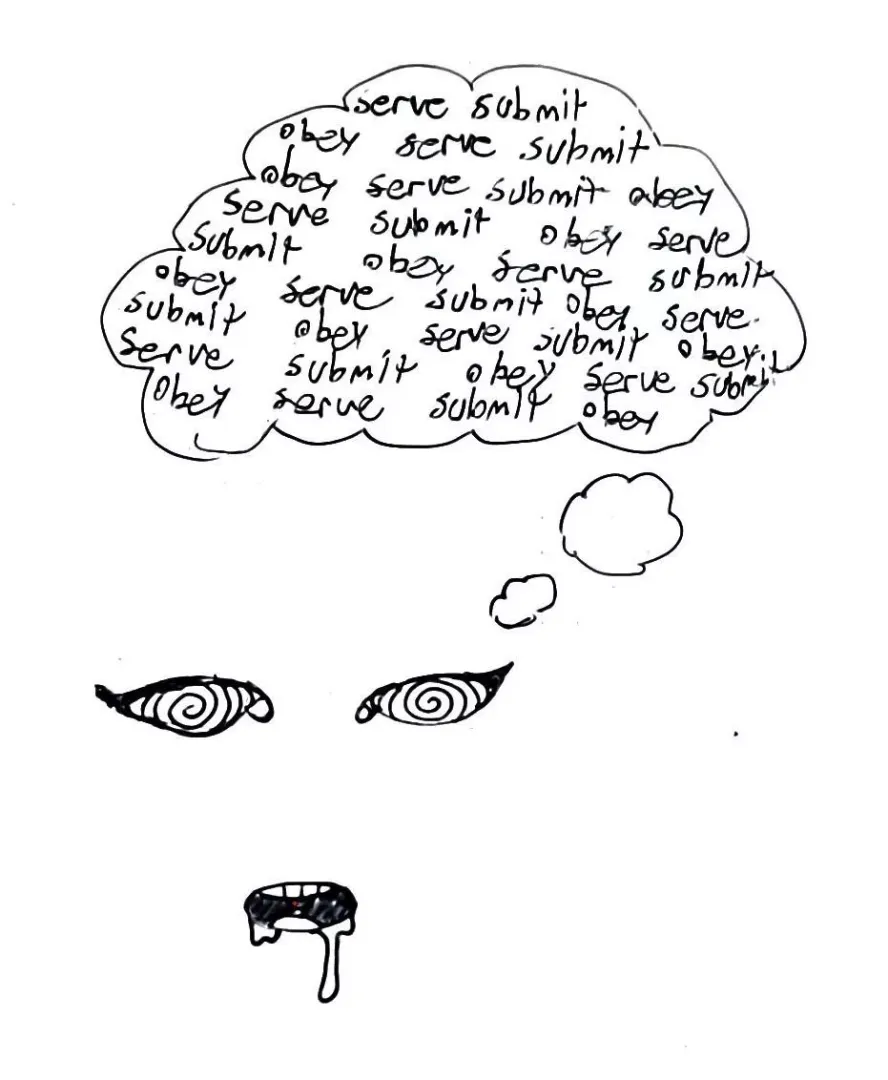 serve submit
obey serve submit
obey serve submit obey
serve submit obey serve
submit obey serve submit
obey serve submit obey serve
submit obey serve submit obey
serve submit obey serve submit
obey serve submit obey